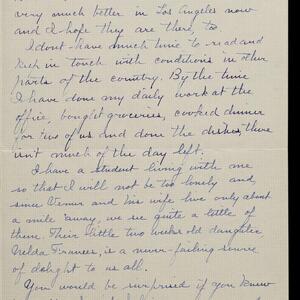 very much better in Los Angeles now
and I hope they are there, to.
I dont have much time to read and
keep in touch with conditions in other
parts of the country. By the time
I have done my daily work at the
office, bought groceries, cooked dinner
for two of us and done the dishes, there
isn't much of the day left.
I have a student living with me
so that I will not be too lonely and,
since and his wife live only about
a mile away, we see quite a little of
them. Their little two weeks old daughter
Nelda Frances, is a never-failing source
of delight to us all.
You would be surprised if you knew